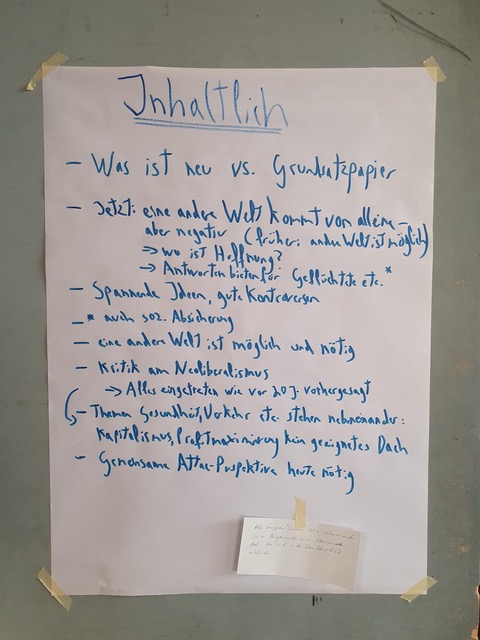 Inhaltlich
– Was ist neu vs. Grundsatzpapier
– Jetzt: eine andere Welt kommt von alleine –
aber negativ (früher: andere Welt ist möglich)
⇒ wo ist Hoffnung?
→ Antworten bieten für Geflüchtete etc.*
– Spannende Ideen, gute Kontroversen
– * auch soz. Absicherung
– eine andere Welt ist möglich und nötig
– Kritik am Neoliberalismus
→ Alles eingetreten wie vor 20 J. vorhergesagt
– Themen Gesundheit, Verkehr etc. stehen nebeneinander:
Kapitalismus, Profitmaximierung kein geeignetes Dach
– Gemeinsame Attac-Perspektive heute nötig